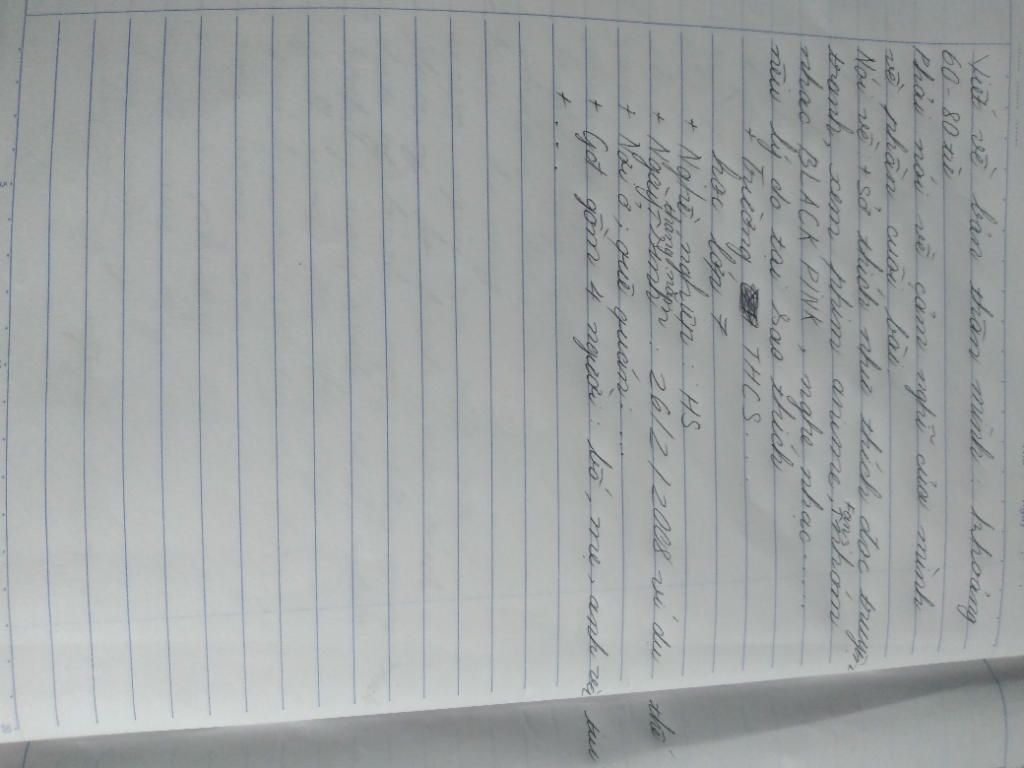 Viết về bản thân mình khoảng
60-80 từ
Phải nói về cảm nghĩ của mình
về phần cuối bài
Nói về + sở thích như thích đọc truyện
tranh, xem phim anime, thích nhóm
nhạc BLACK PINK, nghe nhạc.......
nêu lý do tại sao thích
+ trường THCS.......
học lớp 7
+ Nghề nghiệp: HS
+ Ngày tháng năm sinh: 26/2/2008 ví dụ thế
+ Nơi ở, quê quán:...
+ Gđ gồm 4 người: bố, mẹ, anh trai
+ ....